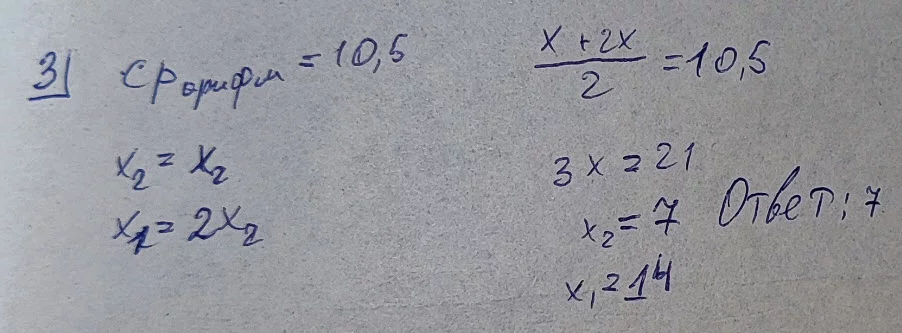 3) Ср арифм = 10,5
x₂ = x₂
x₁ = 2x₂
(x + 2x)/2 = 10,5
3x = 21
x₂ = 7 Ответ: 7
x₁ = 14